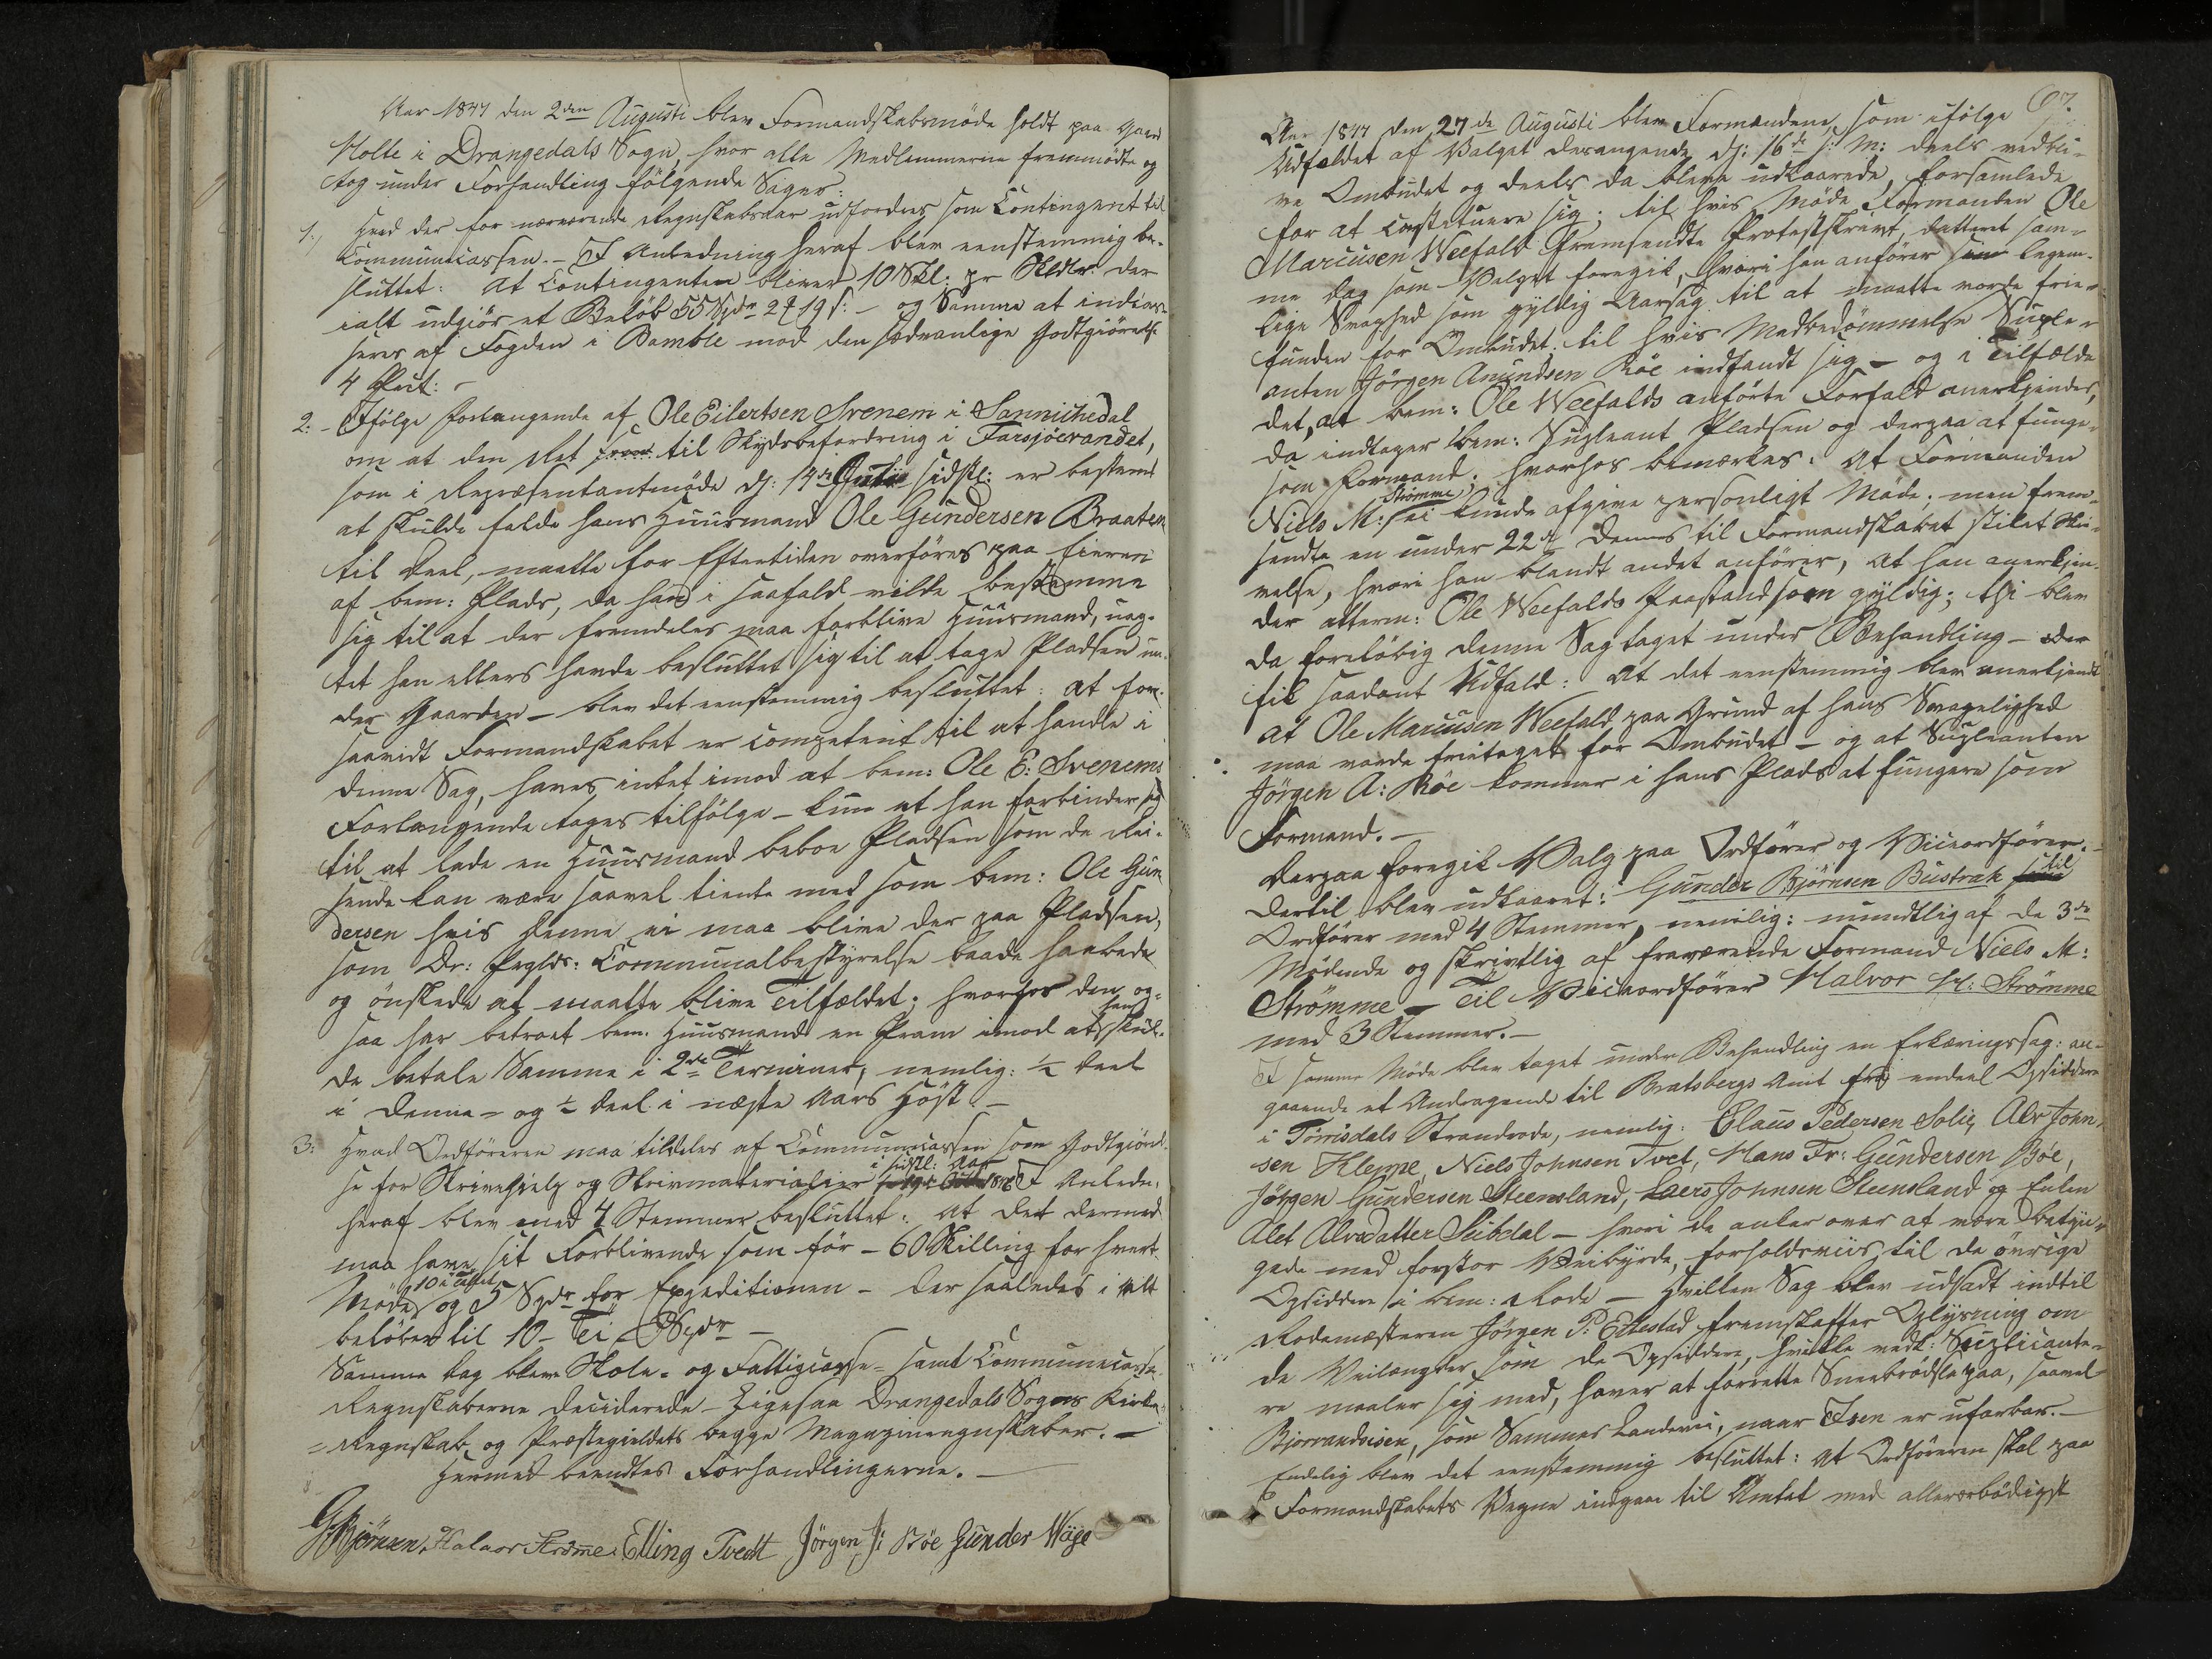 Aar 1847 den 2den Augusti blev Formandskabsmöde holdt paa Gaard
Holte i Drangedals Sogn, hvor alle Medlemmerne fremmödte og
tog under Forhandling fölgende Sager:
1.) Hvad der for nærværende Regnskabsaar udfordres som Contingent til
Communecassen. – I Anledning heraf blev eenstemmig be-
sluttet: At Contingenten bliver 10 Skl: pr Skldlr. der
ialt udgiör et Belöb 55 Spdr 2 19 s: – og Samme at indcas-
seres af Fogden i Bamble mod den sædvanlige Godtgiörelse
4 Prct: –
2. – Ifölge Forlangende af Ole Eilertsen Svenem i Sannichedal
om at den Ret til Skydsbefordring i Farsjöevandet,
som i Repræsentantmöde d: 14de sidstl: er bestemt
at skulde falde hans Huusmand Ole Gundersen Braaten
til Deel, maatte for Eftertiden overföres paa Eieren
af bem: Plads, da han i saafald vilde bestemme
sig til at der fremdeles maa forblive Huusmand, uag-
tet han ellers havde besluttet sig til at tage Pladsen un-
der Gaarden – blev det eenstemmig besluttet: at for-
saavidt Formandskabet er competent til at handle i
denne Sag, haves intet imod at bem: Ole E: Svenems
Forlangende tages tilfölge – kun at han forbinder sig
til at lade en Huusmand beboe Pladsen som de Rei-
sende kan være saavel tiente med som bem: Ole Gun
dersen hvis denne ei maa blive der paa Pladsen,
som Dr: Prglds: Communalbestyrelse baade haabede
og önskede at maatte blive Tilfældet; hvorfor den og-
saa har betroet bem. Huusmand en Pram imod at han skul-
de betale Samme i 2de Terminer, nemlig: ½ Deel
i denne – og ½ Deel i næste Aars Höst. –
3: Hvad Ordföreren maa tildeles af Communecassen som Godtgiörel-
se for Skrivehielp og Skrivmaterialier i sidstl: Aar I Anledn.
heraf blev med 4 Stemmer besluttet: At det dermed
maa have sit Forblivende som för – 60 Skilling for hvert
Möde 10 i Tallet og 5 Spdr for Expeditionen – der saaledes i Alt
belöber til 10 – Ti – Spdr –
Samme Dag bleve Skole- og Fattigcasse- samt Communecasse-
Regnskaberne deciderede – Ligesaa Drangedals Sogns Kirke-
Regnskab og Præstegieldets begge Magazinregnskaber. –
Hermed beendtes Forhandlingerne. –
G. Björnsen, Halvor Strömme. Elling Tvedt Jörgen J: Böe Gunder Wöge
67.
Aar 1847 den 27de Augusti blev Formændene, som ifölge
Udfaldet af Valget desangende d: 16de s: M: deels vedbli-
ve Ombudet og deels da bleve udkaarede, forsamlede
for at constituere sig; til hvis Möde Formanden Ole
Marcusen Weefald fremsendte Protestskrivt, datteret sam-
me Dag som Valget foregik, hvori han anförer sin legem-
lige Svaghed som gyldig Aarsag til at maatte vorde frie-
funden for Ombudet; til hvis Medbedömmelse Suple-
anten Jörgen Amundsen Böe indfandt sig – og i Tilfælde
det, at bem: Ole Weefalds anförte Forfald anerkjendes,
da indtager bem: Supleant Pladsen og dergaa at funge-
som Formand; hvorhos bemærkes: At Formanden
Niels M: Strömme ei kunde afgive personligt Möde; men frem-
sendte en under 22de dennes til Formandskabet stilet Skri-
velse, hvori han blandt andet anförer, at han anerkjen-
der atterm: Ole Weefalds Paastand som gyldig; thi blev
da forelöbig denne Sag taget under Behandling – der
fik saadant Udfald: At det eenstemmig blev anerkjendt
at Ole Marcusen Weefald paa Grund af hans Svagelighed
maa vorde fritaget for Ombudet – og at Supleanten
Jörgen A: Böe kommer i hans Plads at fungere som
Formand. –
Derpaa foregik Valg paa Ordförer og Viceordförer. –
Dertil blev udkaaret: Gunder Björnsen Bustrak til
Ordförer med 4 Stemmer, nemlig: mundtlig af de 3de
Mödende og skrivtlig af fraværende Formand Niels M:
Strömme – Til Viceordförer Halvor H: Strömme
med 3 Stemmer. –
I samme Möde blev taget under Behandling en Erklæringssag: an-
gaaende et Andragende til Bratsbergs Amt fra endeel Opsiddere
i Törrisdals Strandrode, nemlig: Claus Pedersen Solie, Alv John-
sen Kleppe, Niels Johnsen Tvet, Hans Fr: Gundersen Böe,
Jörgen Gundersen Steensland, Laers Johnsen Steensland og Enken
Alet Alvsdatter Seibdal – hvori de anker over at være betyn-
gede med forstor Veibyrde, forholdsviis til de övrige
Opsiddere i bem: Rode – hvilken Sag blev udsadt indtil
Rodemesteren Jörgen P: Eilestad fremskaffer Oplysning om
de Veilængder som de Opsiddere, hvilke vedk: Supplicante-
re maaler sig med, haver at forrette Sneebrödsle paa, saavel
Bjorvandsisen, som Sammes Landevei, naar Isen er ufarbar. –
Endelig blev det eenstemmig besluttet: At Ordföreren skal paa
Formandskabets Vegne indgaae til Amtet med allerærbödigst